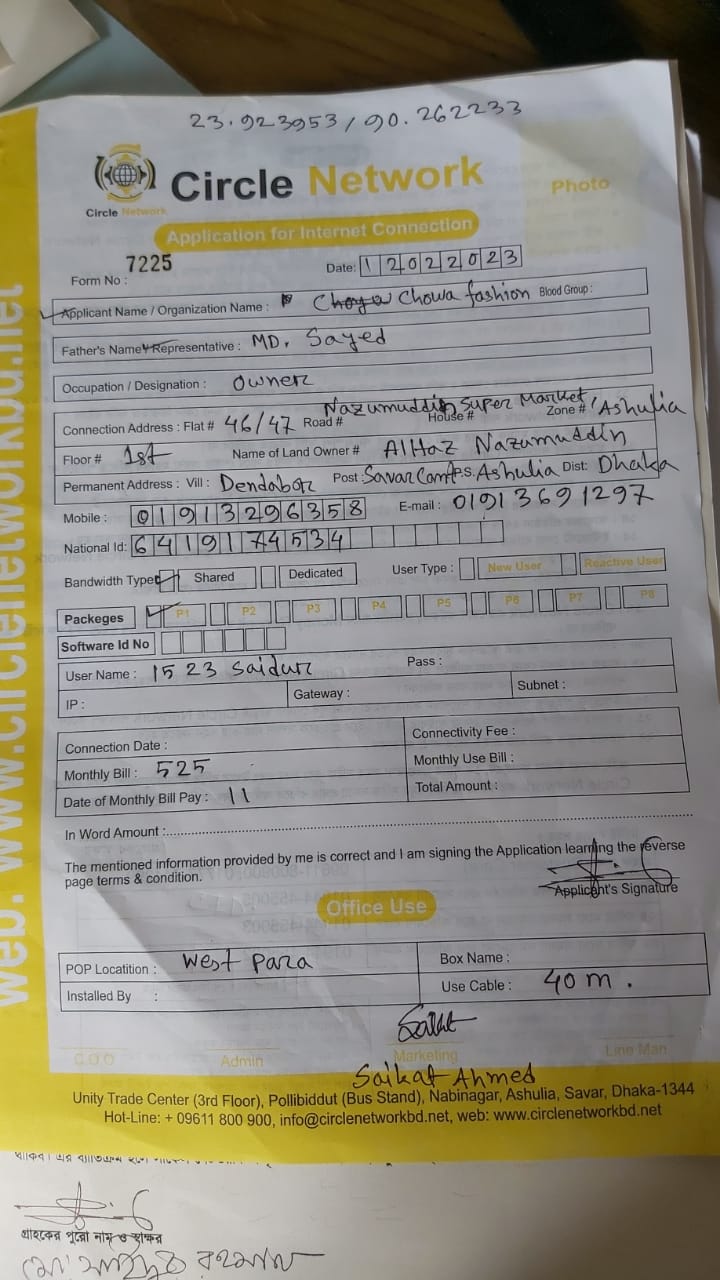 23.923953/90.262233
Circle Network
Circle Network
Photo
Application for Internet Connection
Form No : 7225
Date: 12022023
Applicant Name / Organization Name : Chowa fashion Blood Group :
Father's Name / Representative : MD. Sayed
Occupation / Designation : Owner
Connection Address : Flat # 46/47 Road # Nazumuddin Super Market House # Zone # Ashulia
Floor # 1st Name of Land Owner # AlHaz Nazumuddin
Permanent Address : Vill : Dendabor Post : Savar Cant P.S. Ashulia Dist: Dhaka
Mobile : 01913296358 E-mail : 01913691297
National Id: 6419174534
Bandwidth Type: Shared Dedicated User Type : New User Reactive User
Packeges P1 P2 P3 P4 P5 P6 P7 P8
Software Id No
User Name : 1523 Saidur Pass :
IP : Gateway : Subnet :
Connection Date : Connectivity Fee :
Monthly Bill : 525 Monthly Use Bill :
Date of Monthly Bill Pay : 11 Total Amount :
In Word Amount :
The mentioned information provided by me is correct and I am signing the Application learning the reverse
page terms & condition.
Applicent's Signature
Office Use
POP Locatition : West Para Box Name :
Installed By : Use Cable : 40 m.
C.O.O Admin Marketing Line Man
Saikat Ahmed
Unity Trade Center (3rd Floor), Pollibiddut (Bus Stand), Nabinagar, Ashulia, Savar, Dhaka-1344
Hot-Line: + 09611 800 900, info@circlenetworkbd.net, web: www.circlenetworkbd.net
web: www.circlenetworkbd.net
গ্রাহকের পুরো নাম ও স্বাক্ষর
রহমান